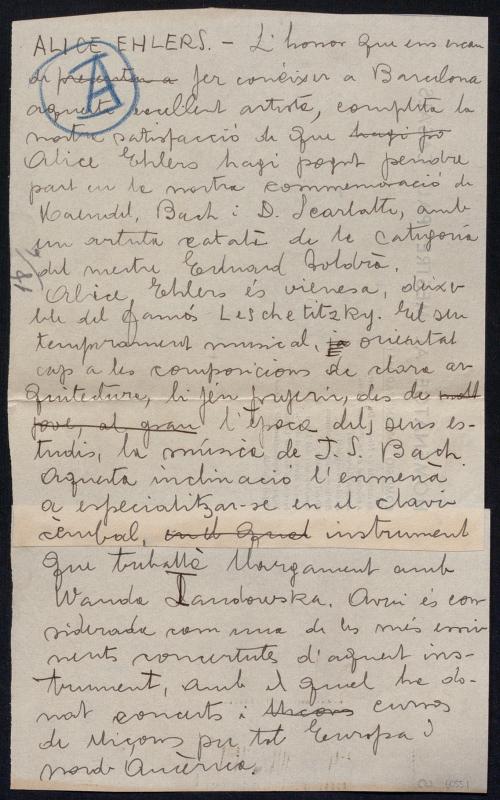 ALICE EHLERS. - L'honor que ens escau
de presentar a fer conèixer a Barcelona
aquesta excellent artista, completa la
nostra satisfacció de que hagi po
Alice Ehlers hagi pogut pendre
part en la nostra commemoració de
Haendel, Bach i D. Scarlatti, amb
un artista català de la categoria
del mestre Eduard Toldrà.
Alice Ehlers és vienesa, deixe-
ble del famós Leschetitzky. El seu
temprament musical, ja orientat
cap a les composicions de clara ar-
quitectura, li féu preferir, des de molt
jove, al grau l'època dels seus es-
tudis, la música de J. S. Bach.
Aquesta inclinació l'enmenà
a especialitzar-se en el clavi-
cèmbal, en el qual instrument
que treballà llargament amb
Wanda Landowska. Avui és con-
siderada com una de les més emi-
nents concertistes d'aquest ins-
trument, amb el qual ha do-
nat concerts i lliçons cursos
de lliçons per tot Europa i
nord-Amèrica.
A